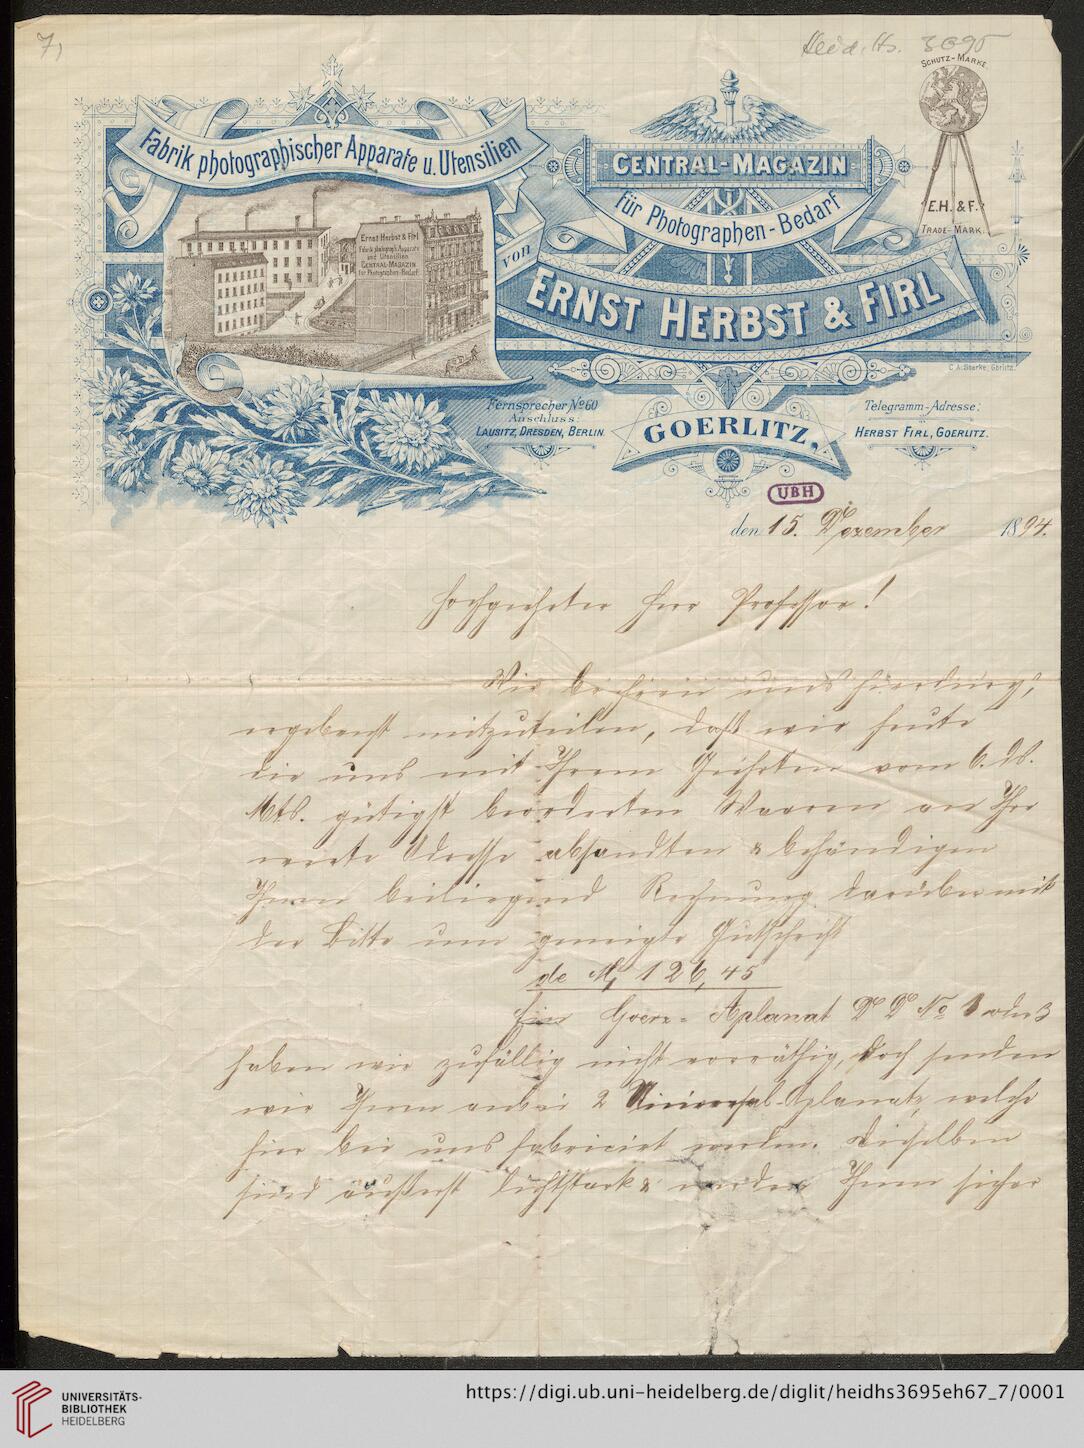 7,
Heid. Hs. 3695
Schutz-Marke.
E.H. & F.
Trade-Mark.
Fabrik photographischer Apparate u. Utensilien
Central-Magazin
für Photographen-Bedarf
von
Ernst Herbst & Firl
Ernst Herbst & Firl
Fabrik photograph. Apparate
und Utensilien
Central-Magazin
für Photographen-Bedarf
C. A. Starke, Görlitz.
Fernsprecher No 60
Anschluss:
Lausitz, Dresden, Berlin.
Goerlitz,
Telegramm-Adresse:
Herbst Firl, Goerlitz.
UBH
den 15. Dezember 1894.
Hochgeehrter Herr Professor!
Wir beehren uns hierdurch,
ergebenst mitzuteilen, daß wir heute
die uns mit Ihrem Geehrten vom 6. ds.
Mts. gütigst beorderten Waaren an Ihre
werte Adresse absandten & behändigen
Ihnen beiliegend Rechnung darüber mit
der Bitte um geneigte Gutschrift
de M, 126,45
Ein Goerz-Aplanat No oder 3
haben wir zufällig nicht vorräthig, doch senden
wir Ihnen anbei 2 Universal-Aplanate, welche
hier bei uns fabricirt werden. Dieselben
sind äußerst lichtstark & werden Ihnen sicher
UNIVERSITÄTS-
BIBLIOTHEK
HEIDELBERG
https://digi.ub.uni-heidelberg.de/diglit/heidhs3695eh67_7/0001